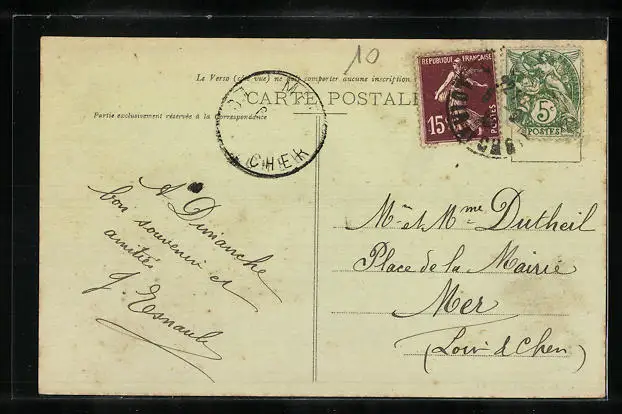 10
Le Verso (côté vue) ne doit comporter aucune inscription
CARTE POSTALE
Partie exclusivement réservée à la Correspondance
CHER
REPUBLIQUE FRANÇAISE
15c
POSTES
5c
POSTES
A Dimanche
bon souvenir et
amitiés
J Esnault
Mr et Mme Dutheil
Place de la Mairie
Mer
(Loir & Cher)